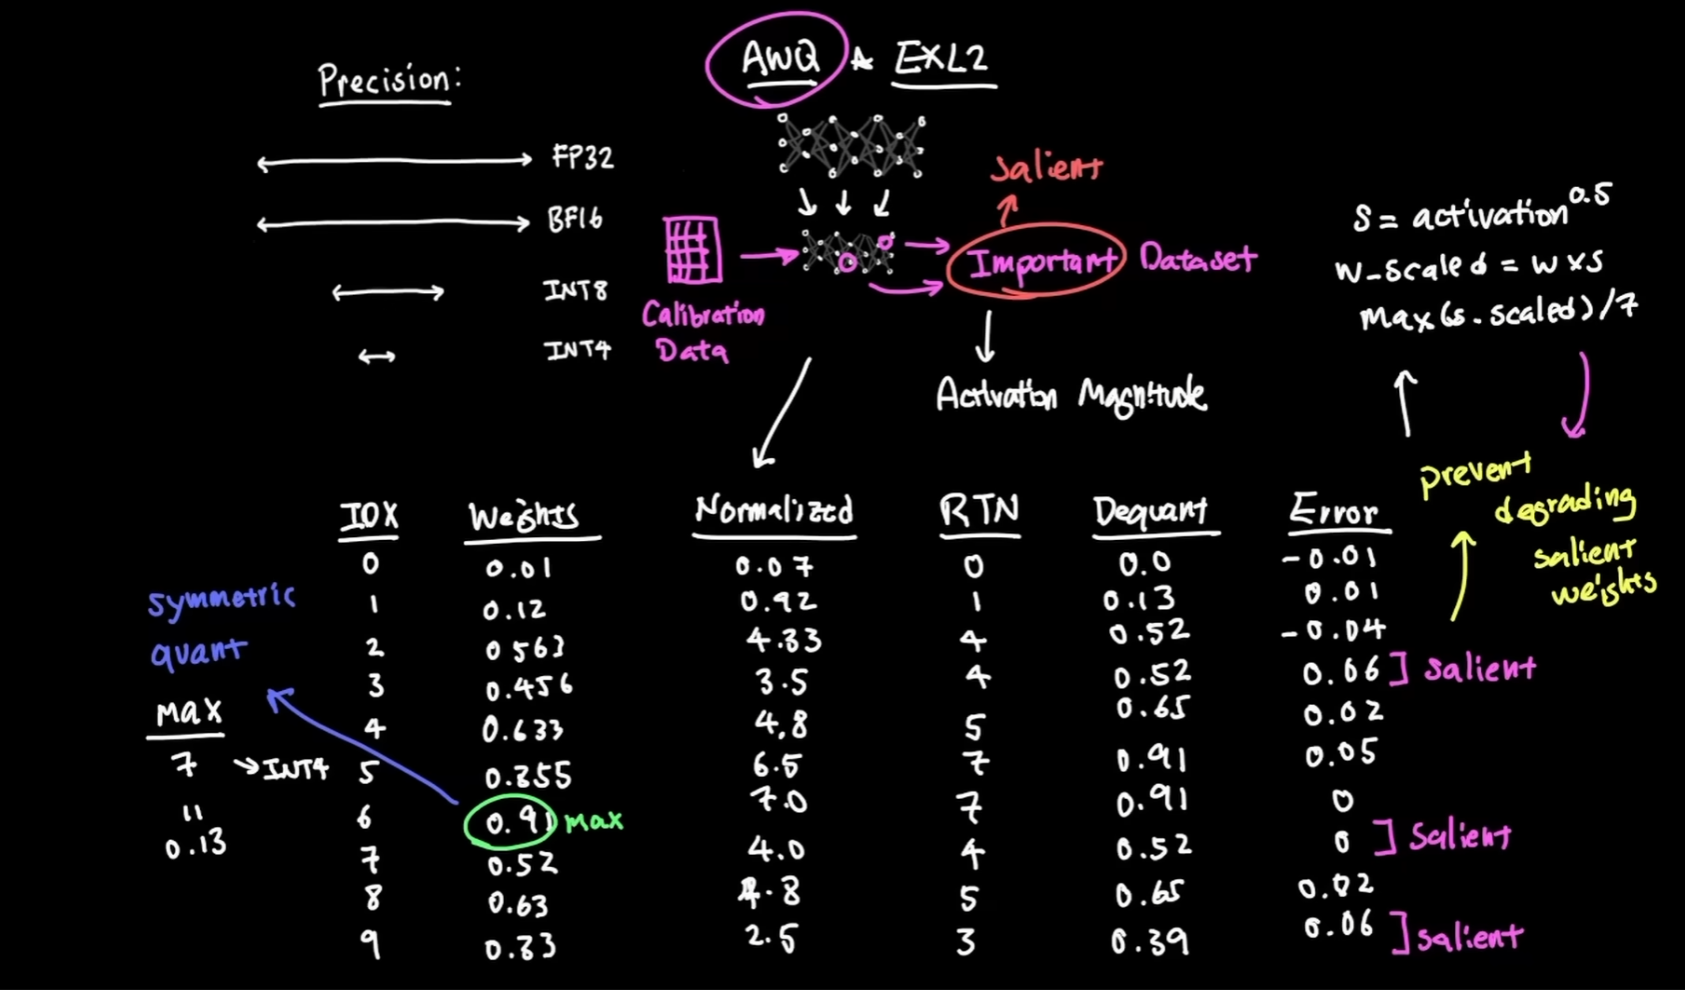 AWQ & EXL2
Precision:
FP32
BF16
INT8
INT4
Calibration
Data
Salient
Important Dataset
Activation Magnitude
S = activation^0.5
W_scaled = W x S
Max(s.scaled)/7
prevent
degrading
salient
weights
symmetric
quant
Max
7 → INT4
11
0.13
IDX Weights Normalized RTN Dequant Error
0 0.01 0.07 0 0.0 -0.01
1 0.12 0.92 1 0.13 0.01
2 0.563 4.33 4 0.52 -0.04
3 0.456 3.5 4 0.52 0.06 ] Salient
4 0.633 4.8 5 0.65 0.02
5 0.855 6.5 7 0.91 0.05
6 0.91 max 7.0 7 0.91 0
7 0.52 4.0 4 0.52 0 ] Salient
8 0.63 4.8 5 0.65 0.02
9 0.33 2.5 3 0.39 0.06 ] Salient